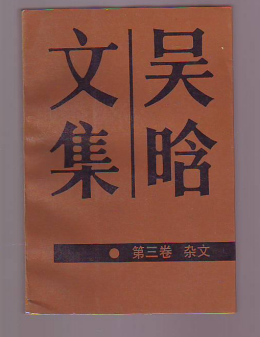 吴晗
文集
第三卷 杂文